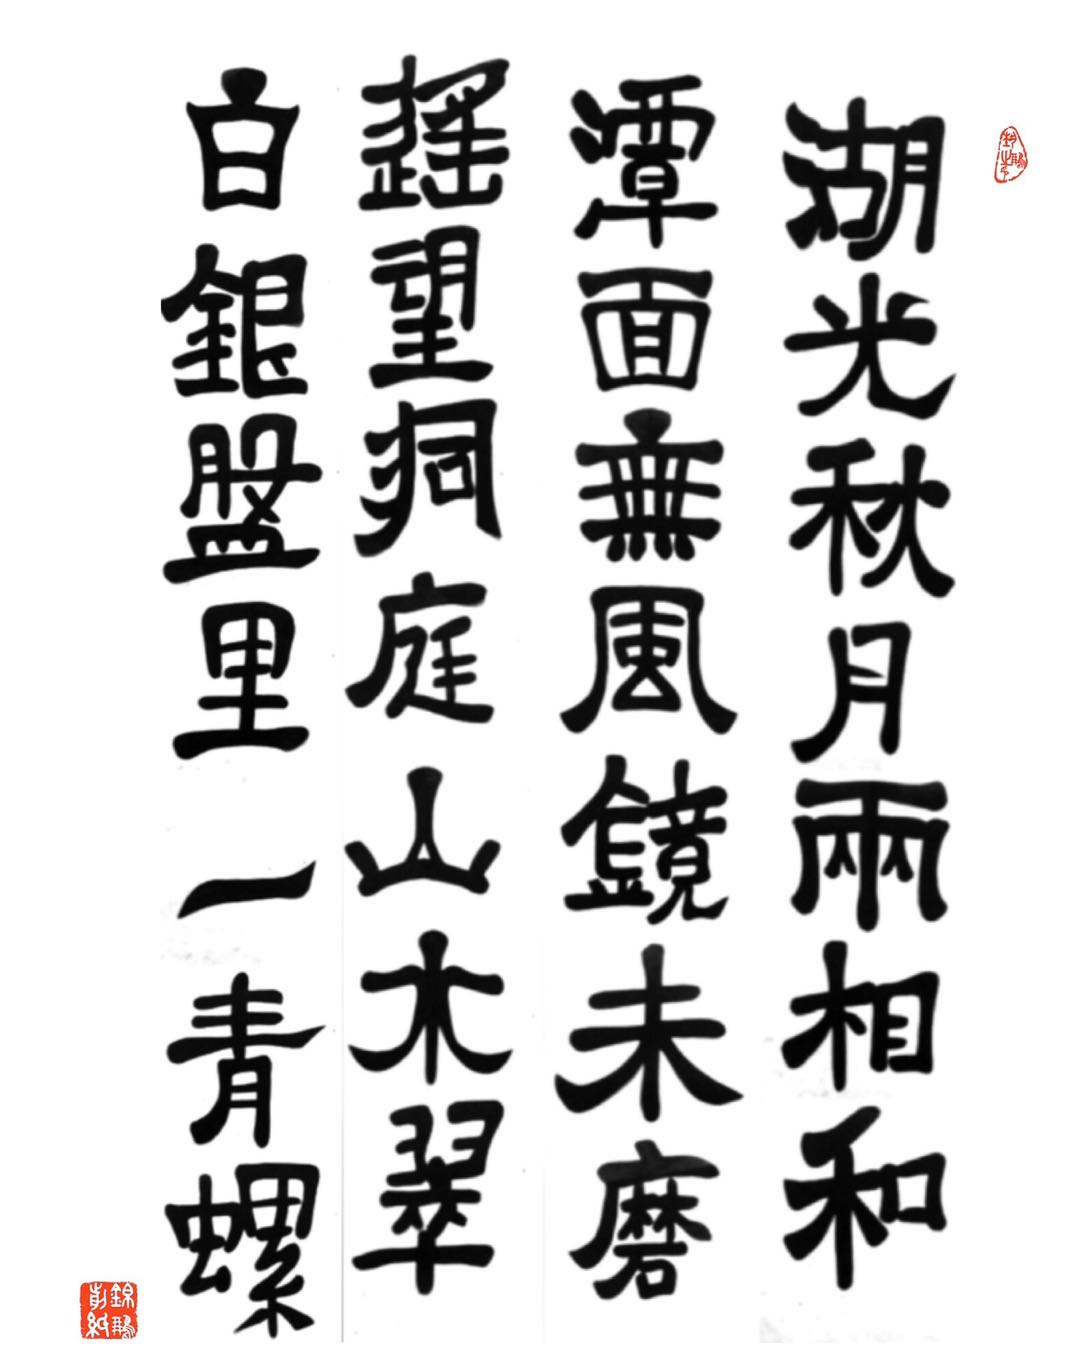 湖光秋月兩相和
潭面無風鏡未磨
遙望洞庭山水翠
白銀盤里一青螺